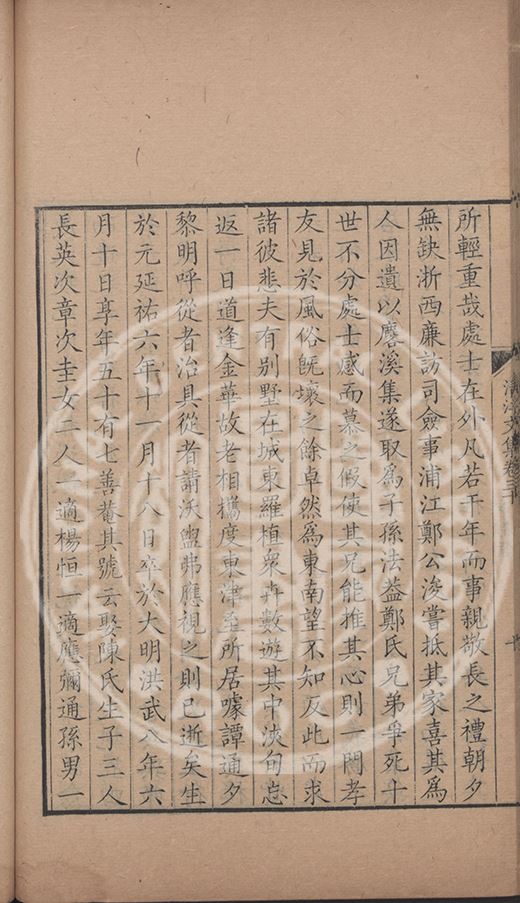 所輕重哉處士在外凡若干年而事親敬長之禮朝夕
無缺浙西廉訪司僉事浦江鄭公浚嘗抵其家喜其為
人因遺以麐溪集遂取為子孫法葢鄭氏兄弟爭死十
世不分處士感而慕之假使其兄能推其心則一門孝
友見於風俗旣壞之餘卓然為東南望不知反此而求
諸彼悲夫有别墅在城東羅植衆卉數遊其中浹旬忘
返一日道逢金華故老相攜度東津至所居噱譚通夕
黎明呼從者治具從者請沃盥弗應視之則已逝矣生
於元延祐六年十一月十八日卒於大明洪武八年六
月十日享年五十有七善菴其號云娶陳氏生子三人
長英次章次圭女二人一適楊恒一適應彌通孫男一